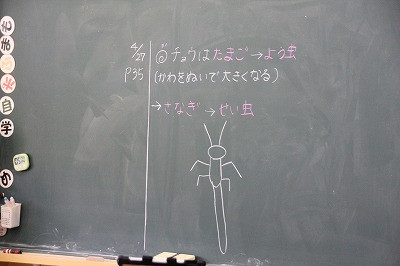 4/27
P35
㋱チョウはたまご→よう虫
(かわをぬいで大きくなる)
→さなぎ→せい虫
自
学
め